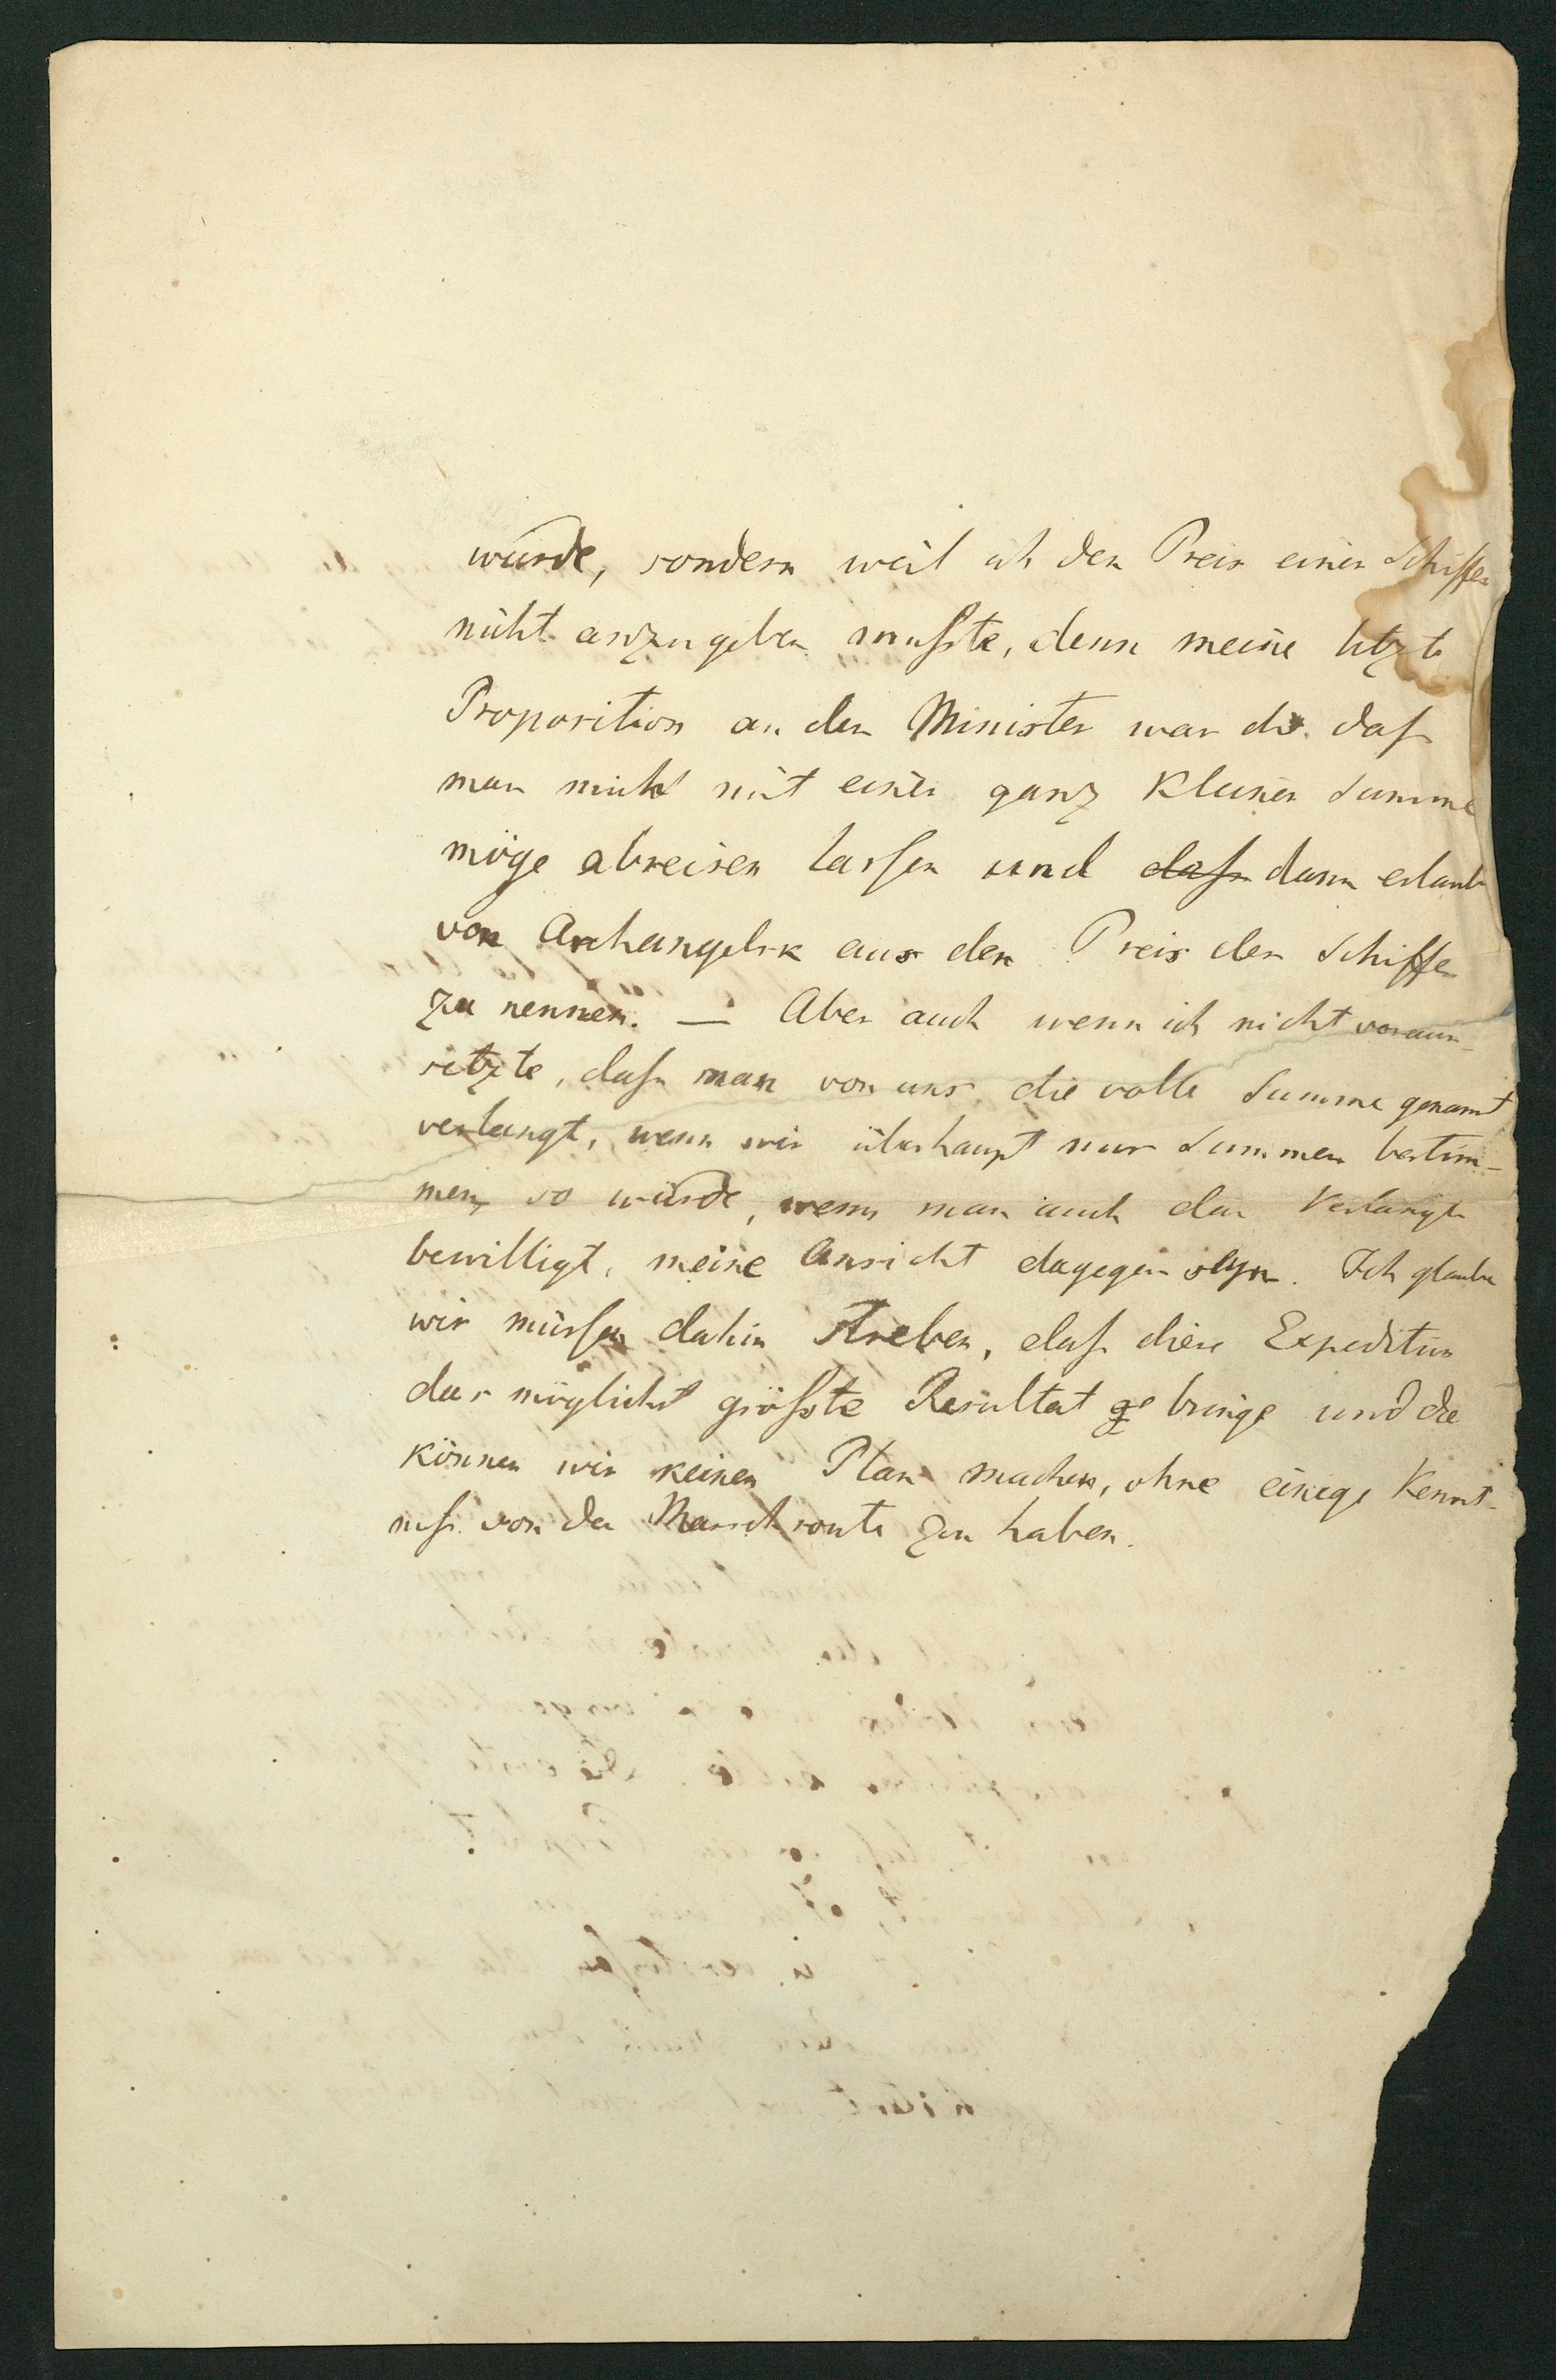 würde, sondern weil ich den Preis eines Schiffes
nicht anzugeben wußte, denn meine letzte
Proposition an den Minister war die daß
man mich mit einer ganz kleinen Summe
möge abreisen lassen und daß dann erlaube
von Archangelsk aus den Preis der Schiffe
zu nennen. — Aber auch wenn ich nicht voraus-
setzte, daß man von uns die volle Summe genannt
verlangt, wenn wir überhaupt nur Summen bestim-
men, so würde, wenn man auch das Verlangte
bewilligt, meine Ansicht dagegen seyn. Ich glaube
wir müssen dahin streben, daß diese Expedition
das möglichst größte Resultat ge bringe und die
können wir keinen Plan machen, ohne einige Kennt-
niß von der Marschroute zu haben.